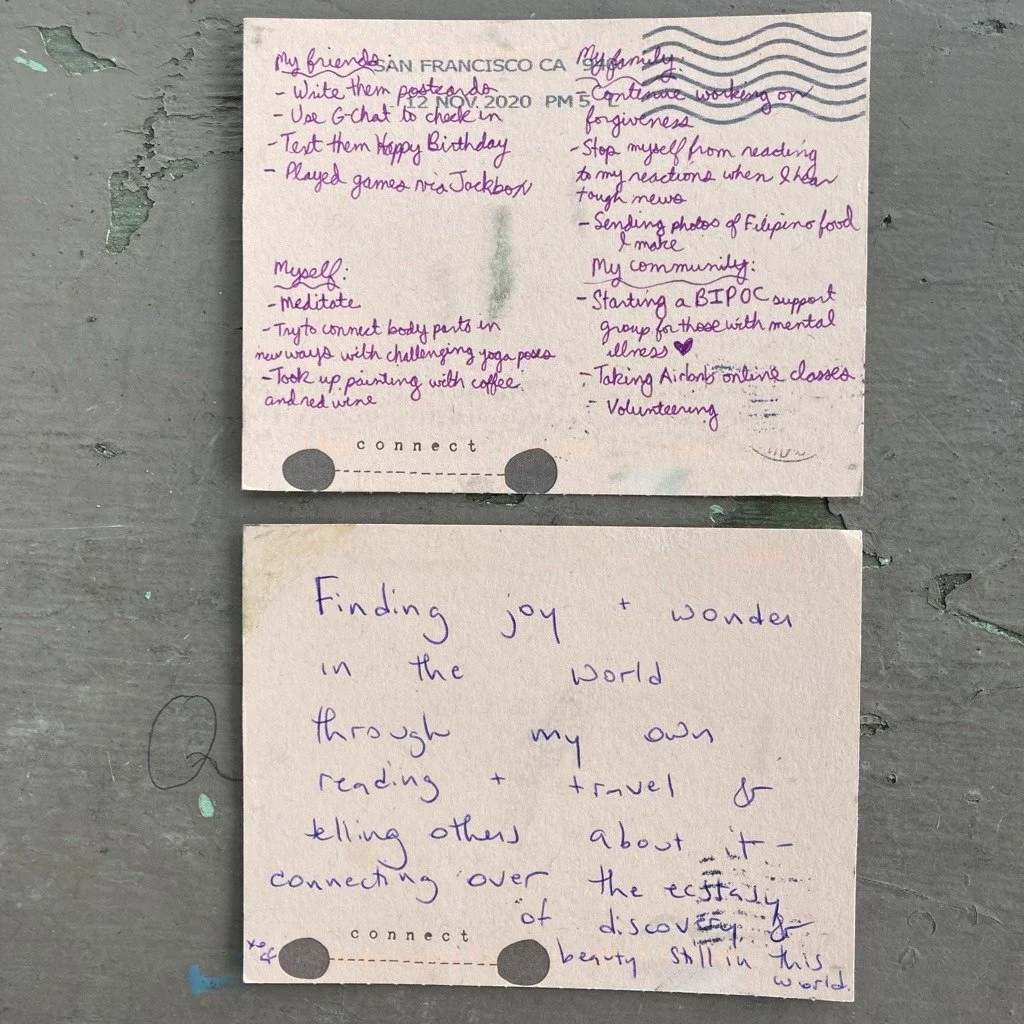 My friends
- Write them postcards
- Use G-Chat to check in
- Text them Happy Birthday
- Played games via Jackbox
SAN FRANCISCO CA 940
12 NOV 2020 PM 5 L
My family:
- Continue working on
forgiveness
- Stop myself from reacting
to my reactions when I hear
tough news
- Sending photos of Filipino food
I make
Myself:
- Meditate
- Try to connect body parts in
new ways with challenging yoga poses
- Took up painting with coffee
and red wine
My community:
- Starting a BIPOC support
group for those with mental
illness ♥
- Taking Airbnb online classes
- Volunteering
connect
Finding joy + wonder
in the world
through my own
reading + travel &
telling others about it -
connecting over the ecstasy
of discovery &
beauty still in this
world.
connect